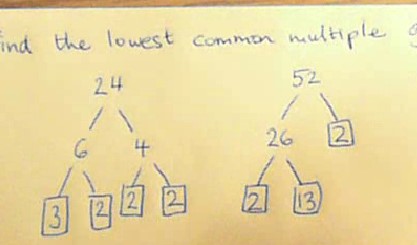 ind the lowest common multiple
24 52
6 4 26 2
3 2 2 2 2 13